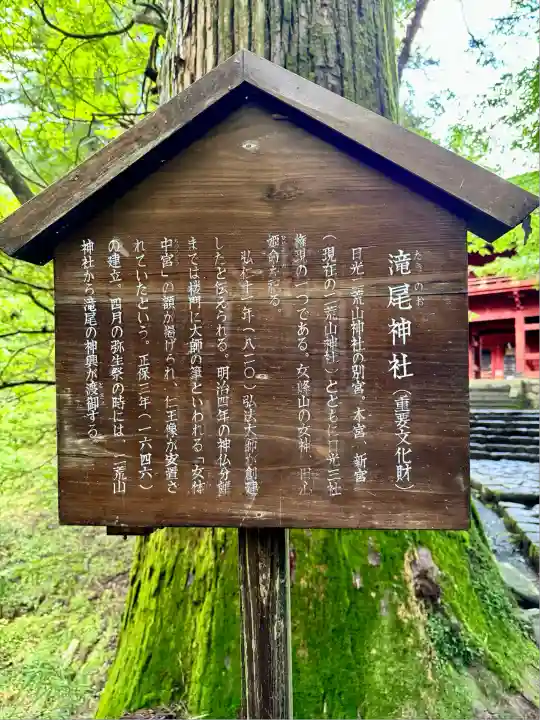 滝尾神社（重要文化財）
たきのお
日光二荒山神社の別宮。本宮、新宮
（現在の二荒山神社）とともに日光三社
権現の一つである。女峰山の女神、田心
姫命を祀る。
弘仁十一年（八二〇）弘法大師が創建
したと伝えられる。明治四年の神仏分離
までは楼門に大師の筆といわれる「女体
中宮」の額が掲げられ、仁王像が安置さ
れていたという。正保三年（一六四六）
の建立。四月の弥生祭の時には、二荒山
神社から滝尾の神輿が渡御する。